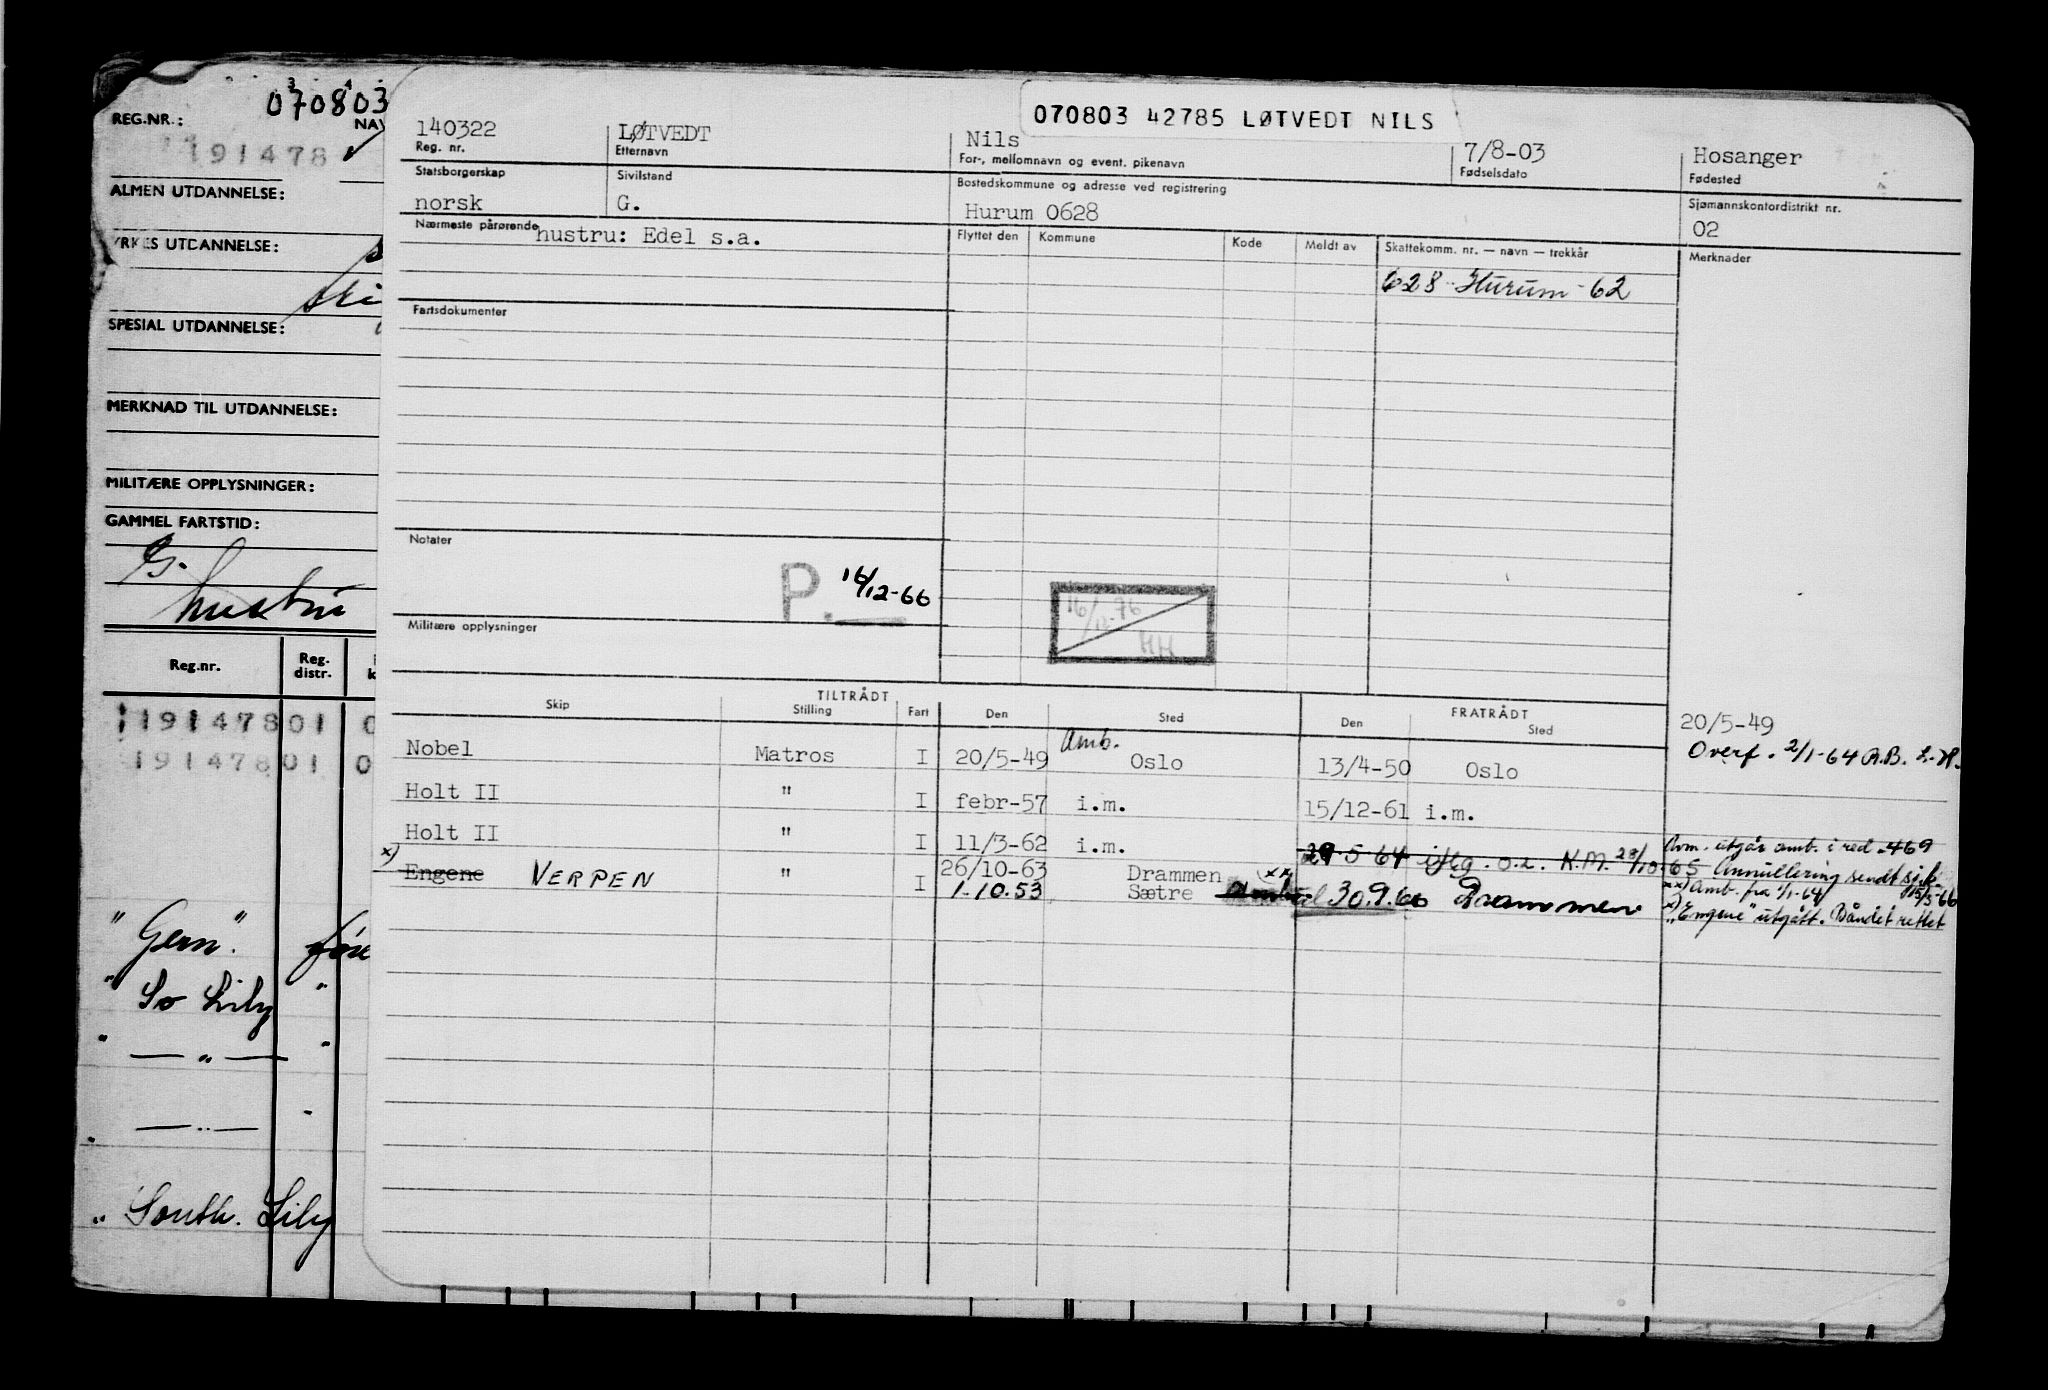 070803
REG.NR.:
NAV
191478
ALMEN UTDANNELSE:
YRKES UTDANNELSE:
SPESIAL UTDANNELSE:
MERKNAD TIL UTDANNELSE:
MILITÆRE OPPLYSNINGER:
GAMMEL FARTSTID:
G.
hustru
Reg.nr.
Reg. distr.
191478 01 0
191478 01 0
"Gern". før
" So Lily "
" — " — "
" — " — "
" South. Lily
070803 42785 LØTVEDT NILS
140322 LØTVEDT Nils 7/8-03 Hosanger
Reg. nr. Etternavn For-, mellomnavn og event. pikenavn Fødselsdato Fødested
Statsborgerskap Sivilstand Bostedskommune og adresse ved registrering Sjømannskontordistrikt nr.
norsk G. Hurum 0628 02
Nærmeste pårørende hustru: Edel s.a. Flyttet den Kommune Kode Meldt av Skattekomm. nr. — navn — trekkår Merknader
628 Hurum - 62
Fartsdokumenter
Notater
P. 16/12-66
16/12-76
HH
Militære opplysninger
TILTRÅDT FRATRÅDT
Skip Stilling Fart Den Sted Den Sted
20/5-49
Nobel Matros I 20/5-49 Amb. Oslo 13/4-50 Oslo Overf. 2/1-64 A.B. L.H.
Holt II " I febr-57 i.m. 15/12-61 i.m.
Holt II " I 11/3-62 i.m. Avm. utgår amb. i red. 469
29.5 64 iflg. o.z. K.M. 28/10-65 Annullering sendt
x) Engene VERPEN " I 26/10-63 Drammen xx)
1.10.53 Sætre 30.9.66 Drammen
xx) Amb. fra 1/1-64
x) "Engene" utgått. Båndet rettet